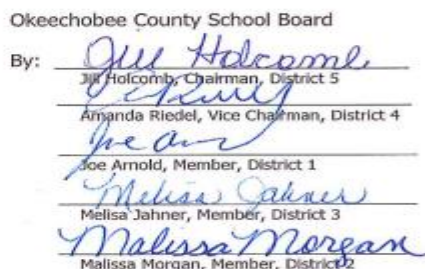 Okeechobee County School Board
By: Jill Holcomb
Jill Holcomb, Chairman, District 5
Amanda Riedel, Vice Chairman, District 4
Joe Arn
Joe Arnold, Member, District 1
Melisa Jahner
Melisa Jahner, Member, District 3
Malissa Morgan
Malissa Morgan, Member, District 2